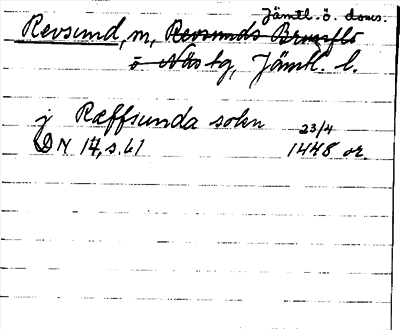 Jämtl. ö. doms.
Revsund, m, Revsunds Brunflo
o Näs tg, Jämtl. l.
j Ræffsunda sokn 23/4
DN 14, s. 61 1448 or.